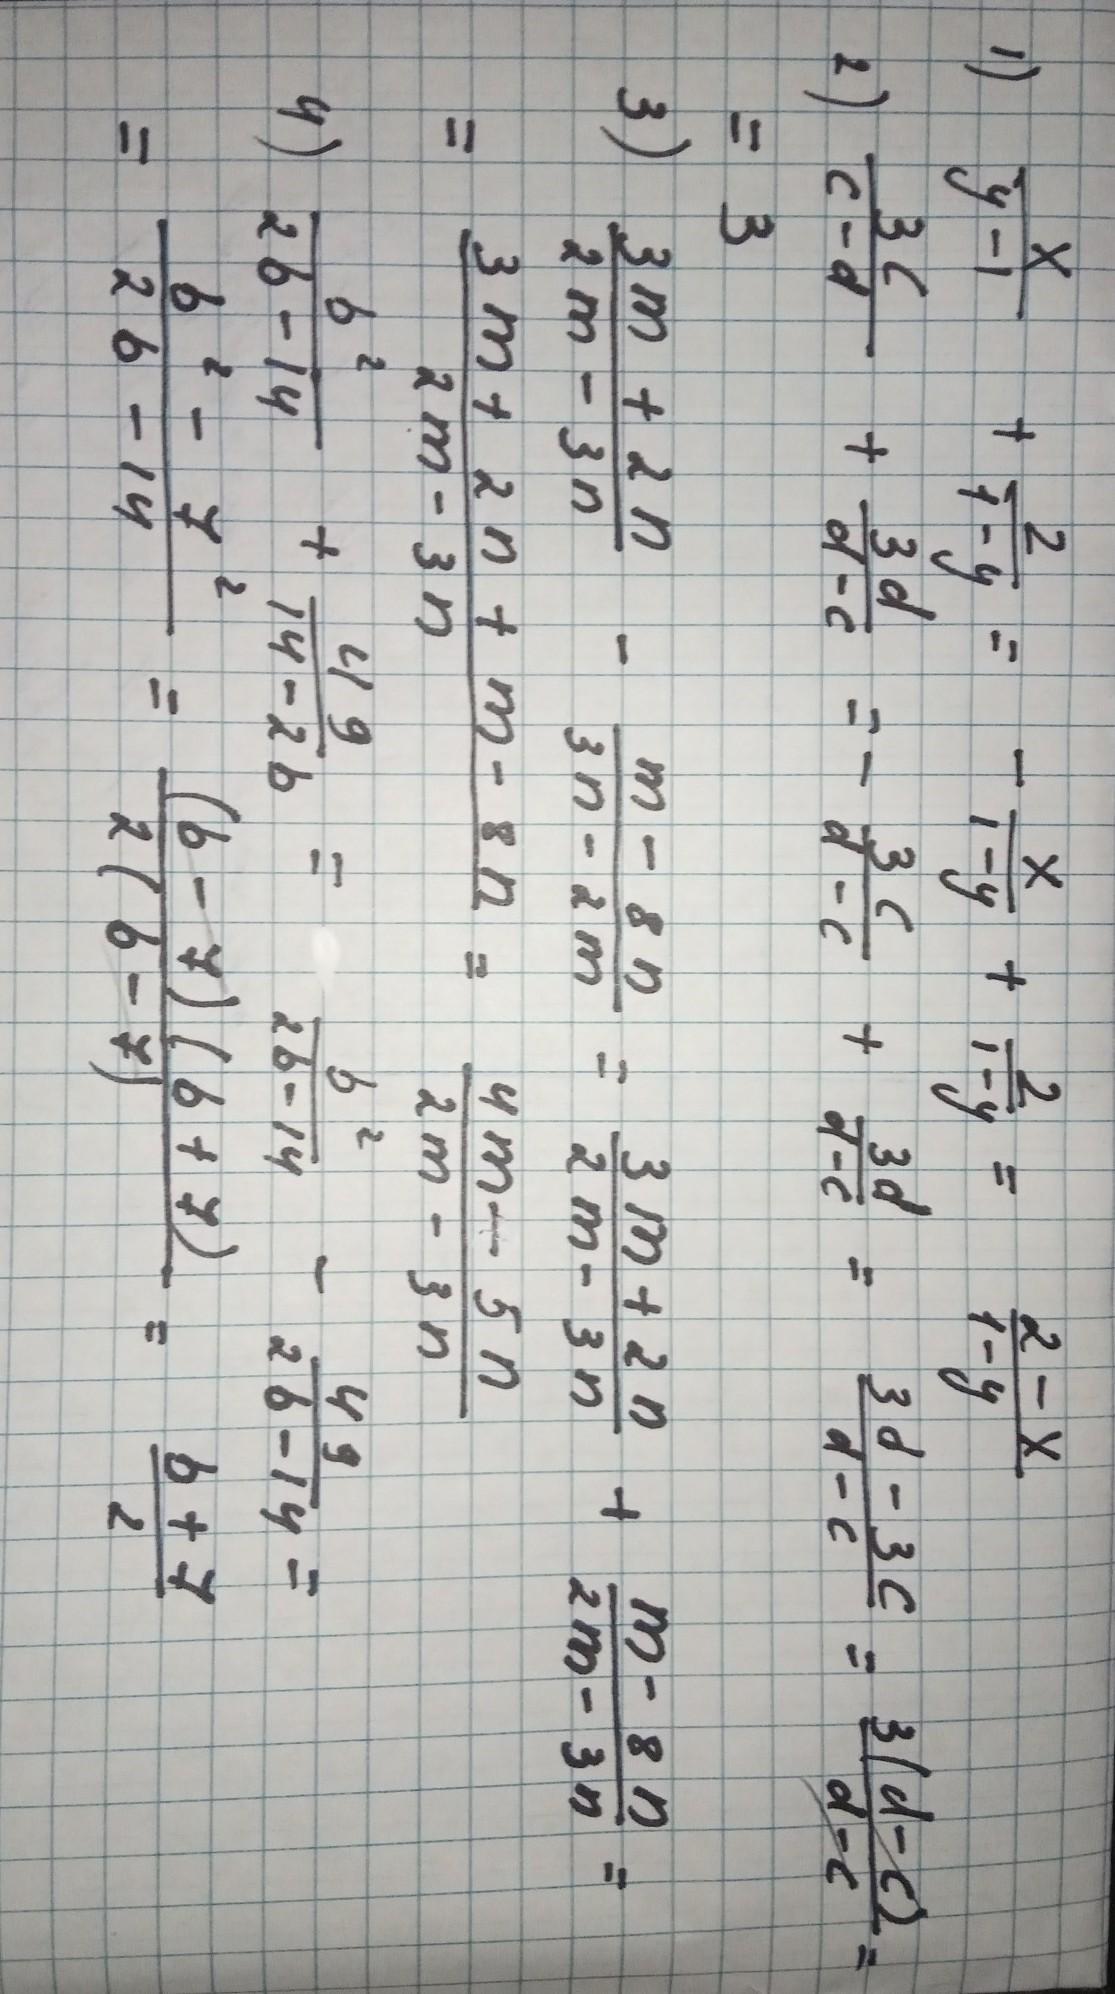 1) x/(y-1) + 2/(1-y) = - x/(1-y) + 2/(1-y) = (2-x)/(1-y)
2) 3c/(c-d) + 3d/(d-c) = - 3c/(d-c) + 3d/(d-c) = (3d-3c)/(d-c) = 3(d-c)/(d-c) =
= 3
3) (3m+2n)/(2m-3n) - (m-8n)/(3n-2m) = (3m+2n)/(2m-3n) + (m-8n)/(2m-3n) =
= (3m+2n+m-8n)/(2m-3n) = (4m-5n)/(2m-3n)
4) b²/(2b-14) + 49/(14-2b) = b²/(2b-14) - 49/(2b-14) =
= (b²-7²)/(2b-14) = (b-7)(b+7)/2(b-7) = (b+7)/2